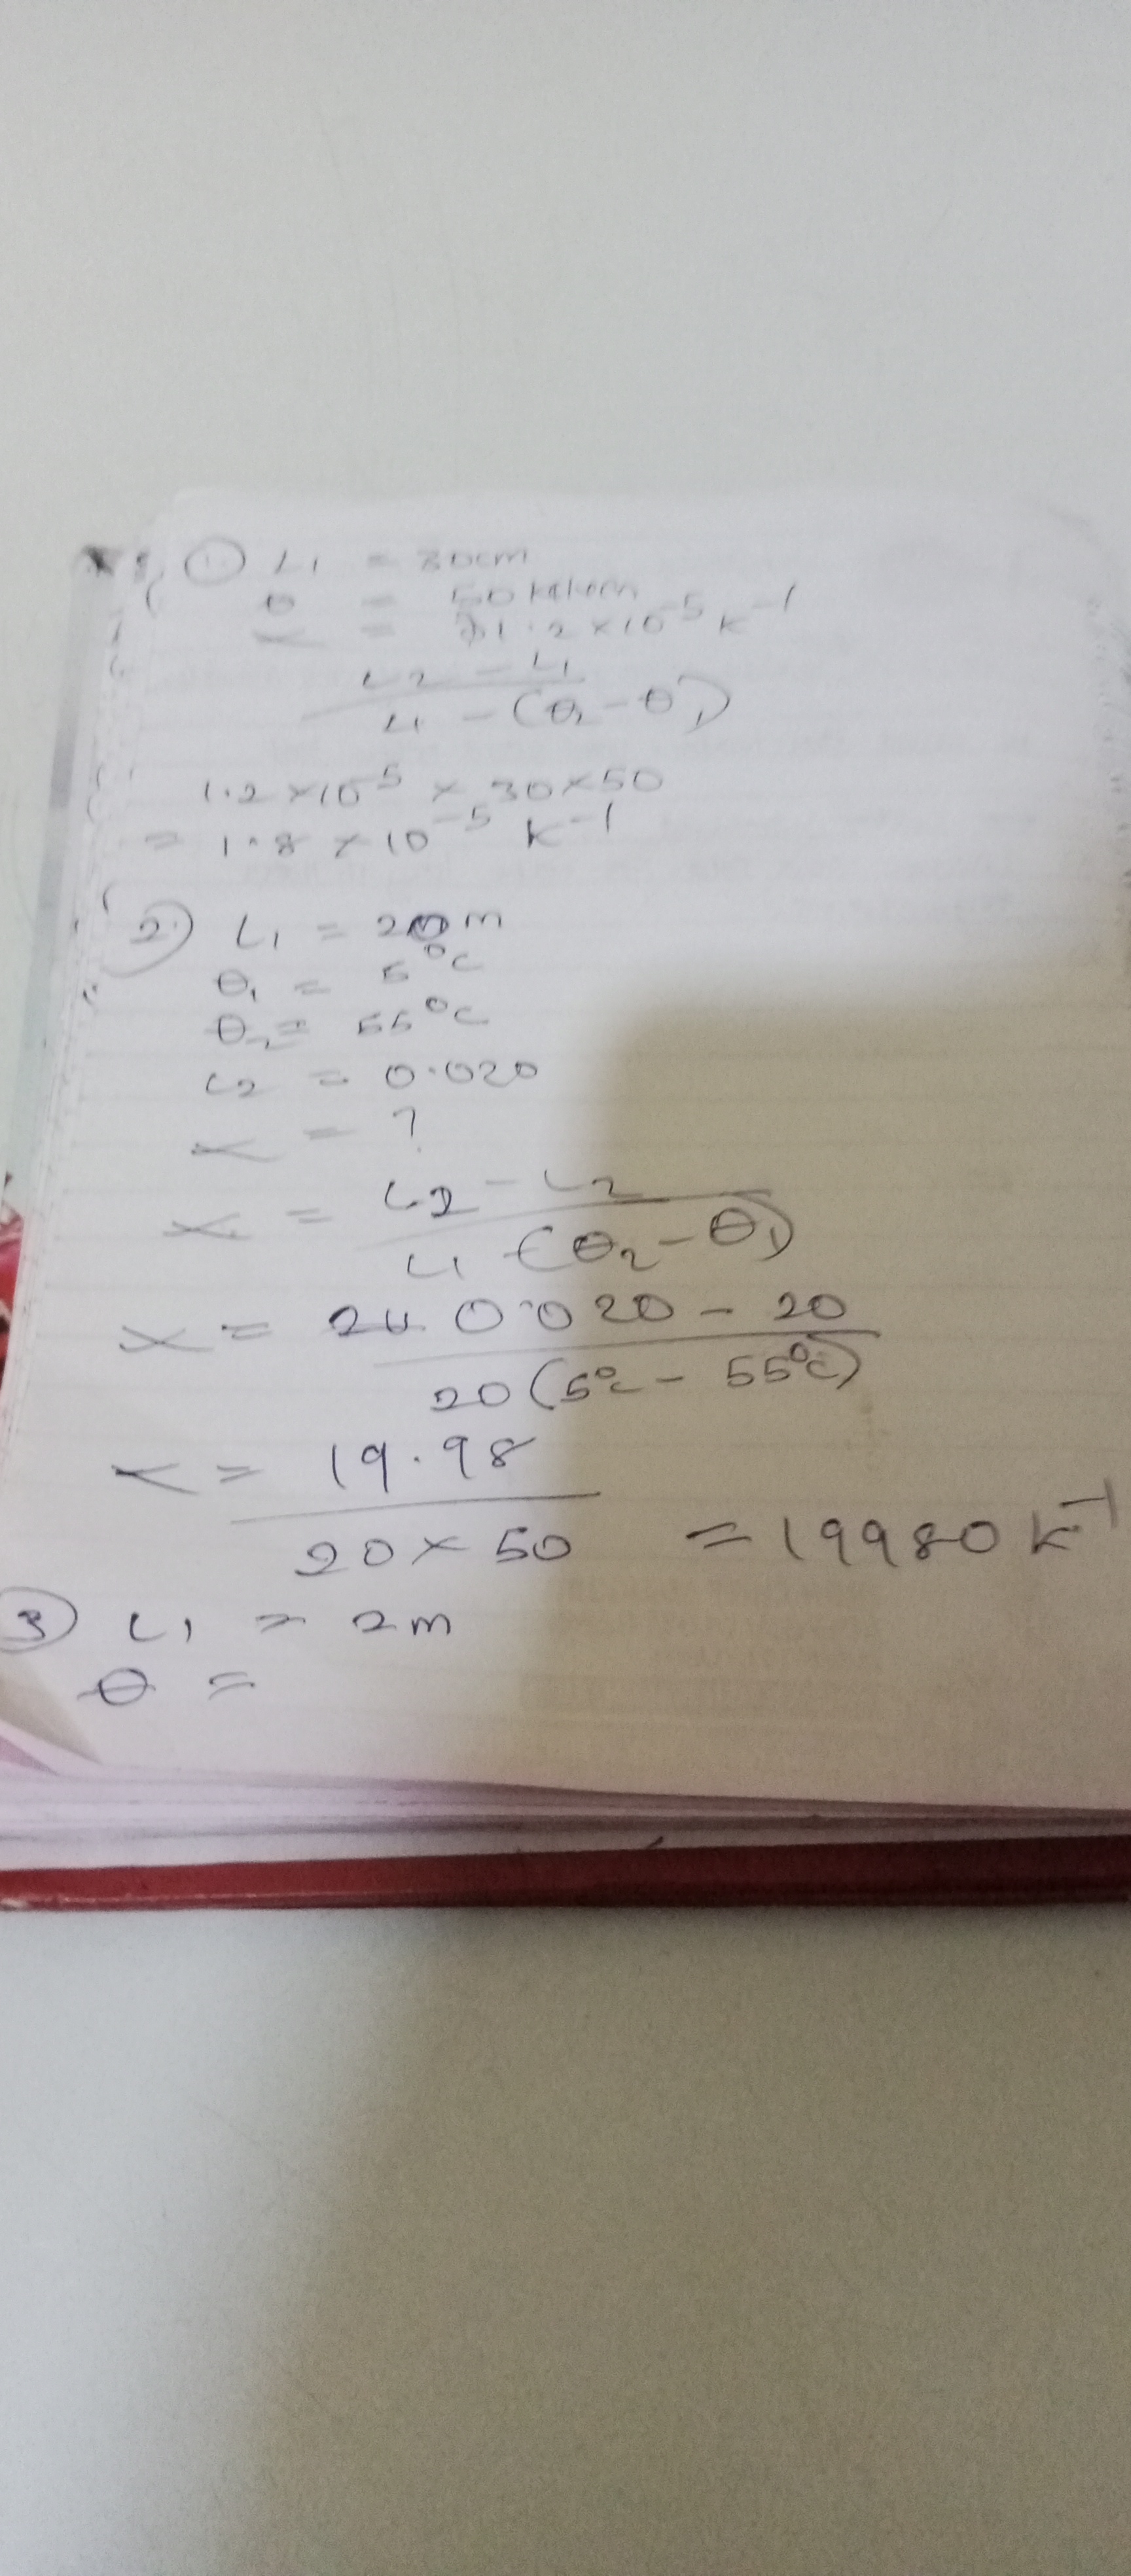 ① L₁ = 30cm
θ = 50 kelvin
∝ = 1.2 × 10⁻⁵ k⁻¹
L₂ - L₁
L₁ - (θ₂ - θ₁)
1.2 × 10⁻⁵ × 30 × 50
= 1.8 × 10⁻⁵ k⁻¹
② L₁ = 20 m
θ₁ = 5°C
θ₂ = 55°C
L₂ = 0.020
∝ = ?
∝ = L₂ - L₂
L₁ (θ₂ - θ₁)
∝ = 0.020 - 20
20 (5°c - 55°c)
∝ = 19.98
20 × 50 = 19980 k⁻¹
③ L₁ = 2m
θ =